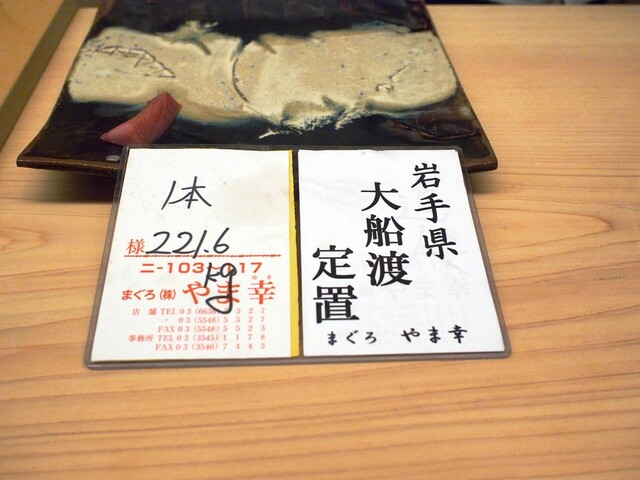 1本
様 221.6
kg
ニ-103-017
ゆき
まぐろ(株) やま幸
店 舗 TEL 03 (6633) 5 5 2 7
- 03 (5548) 5 5 2 7
FAX 03 (5548) 5 5 2 3
事務所 TEL 03 (3545) 1 1 7 8
FAX 03 (3546) 7 4 4 3
岩手県
大船渡
定置
まぐろ やま幸